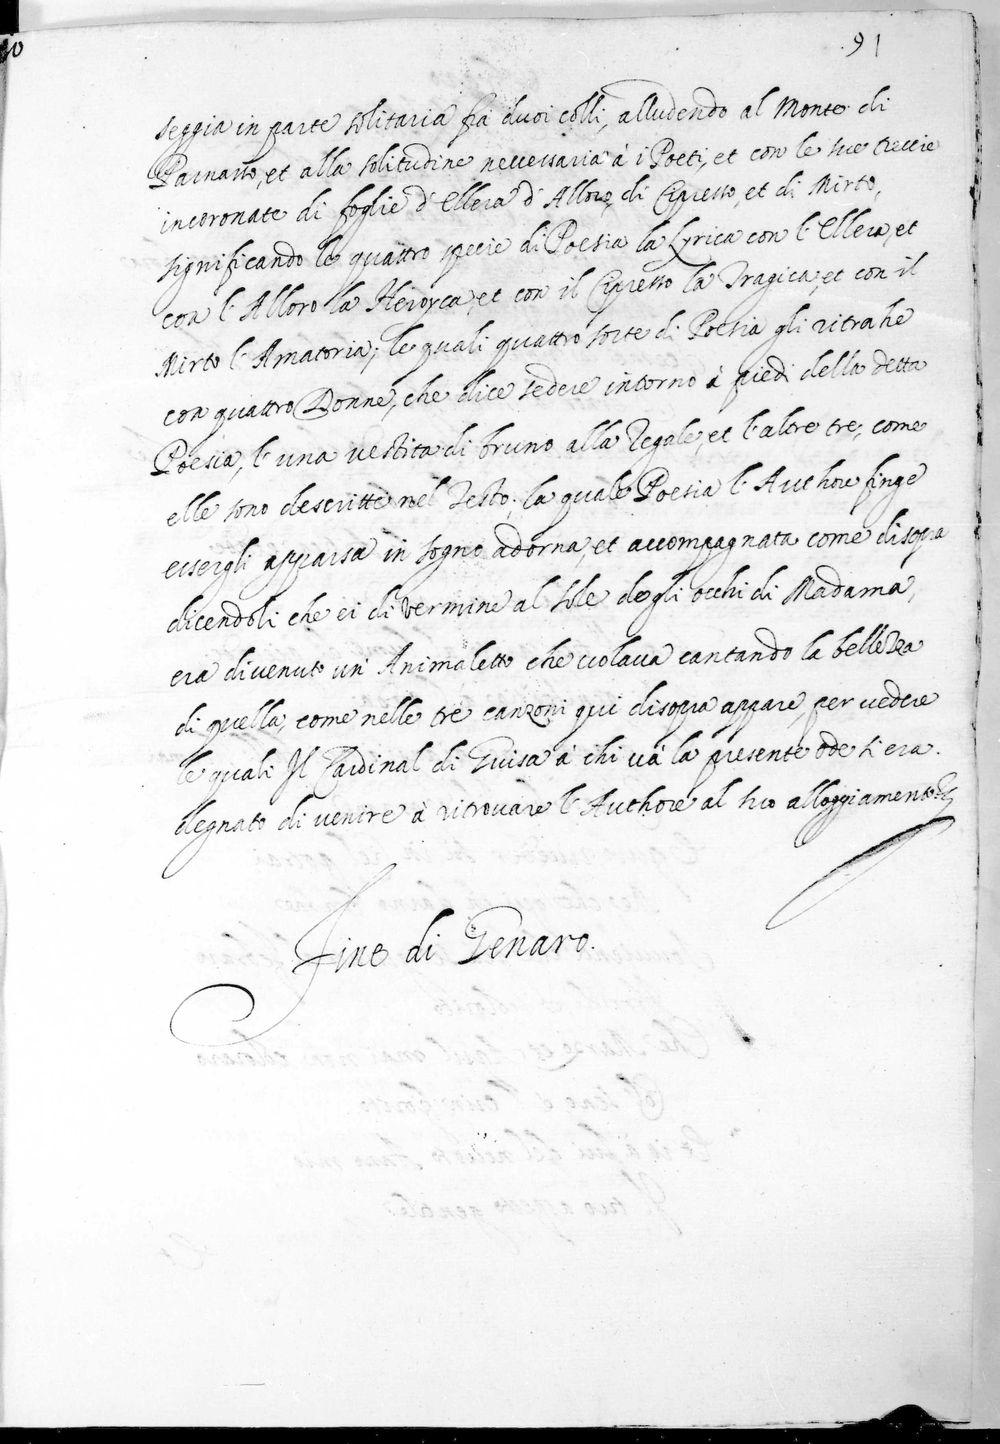 91
seggia in parte solitaria fra duoi colli, alludendo al Monte di
Parnasso, et alla solitudine neccessaria à i Poeti, et con le sue treccie
incoronate di foglie d'Ellera d'Alloro, di Cipresso, et di Mirto,
significando le quattro specie di Poesia la Lyrica con l'Ellera, et
con l'Alloro la Heroyca, et con il Cipresso la Tragica, et con il
Mirto l'Amatoria; le quali quattro sorte di Poesia gli ritrahe
con quattro Donne, che dice sedere intorno à piedi della detta
Poesia, l'una vestita di bruno alla Regale, et l'altre tre, come
elle sono descritte nel Testo; la quale Poesia l'Authore finge
essergli apparsa in sogno adorna, et accompagnata come disopra
dicendoli che ei di vermine al sole degli occhi di Madama,
era divenuto un' Animaletto che volava cantando la bellezza
di quella, come nelle tre canzoni qui disopra appare, per vedere
le quali Il Cardinal di Guisa à chi và la presente ode s'era
degnato di venire à ritrovare l'Authore al suo alloggiamento.
Fine di Genaro.